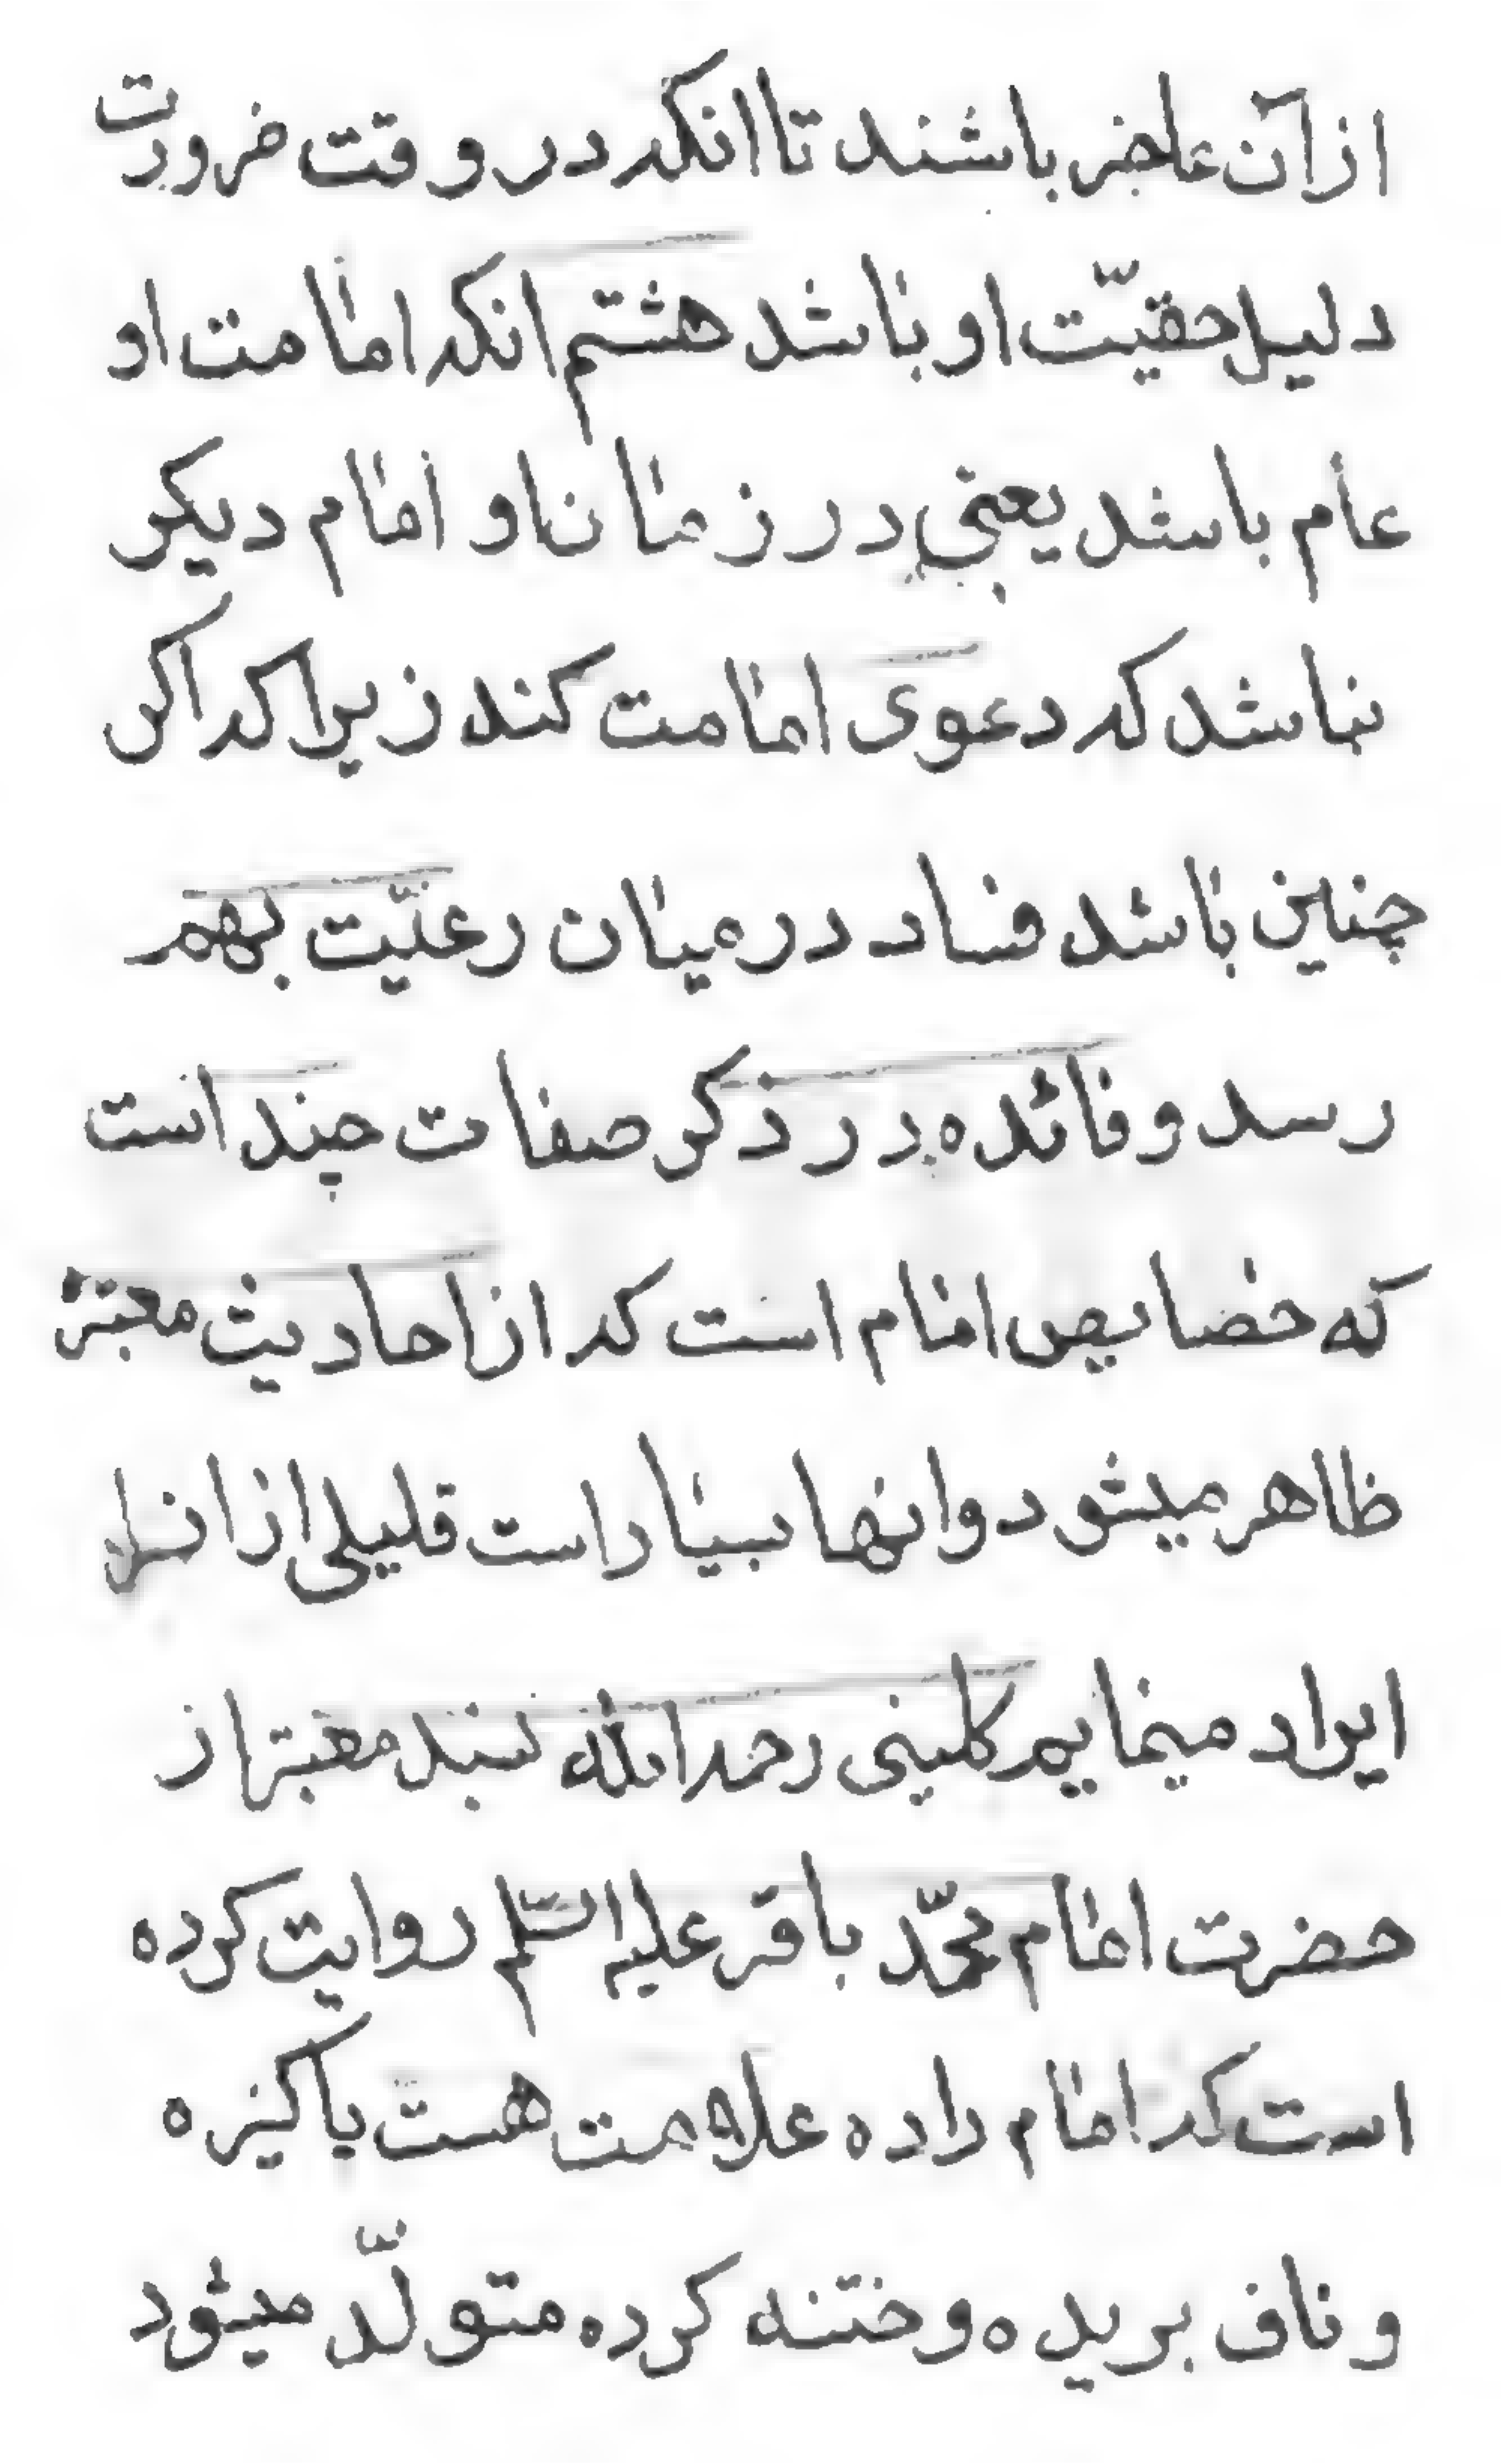 از آن عاجز باشند تا انکه در وقت ضرورت
دلیل حقیّت او باشد هشتم انکه امامت او
عام باشد یعنی در زمان او امام دیکر
نباشد که دعوی امامت کند زیرا که اکر
چنین باشد فساد در میان رعیّت بهم
رسد و فائده در ذکر صفات چند است
که خصایص امام است که از احادیث معتبره
ظاهر میشود و انها بسیار است قلیلی از انها
ایراد مینمایم کلینی رحمه الله بسند معتبر از
حضرت امام محمّد باقر علیه السّلم روایت کرده
است که امام را ده علامت هست پاکیزه
و ناف بریده و ختنه کرده متولّد میشود